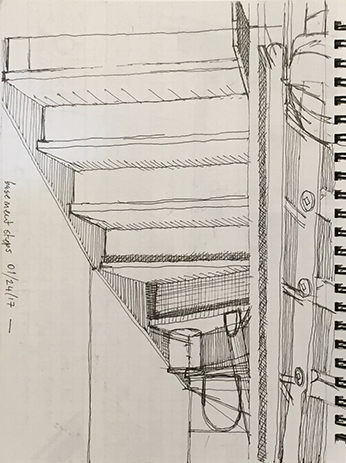 basement steps 01/24/17 —